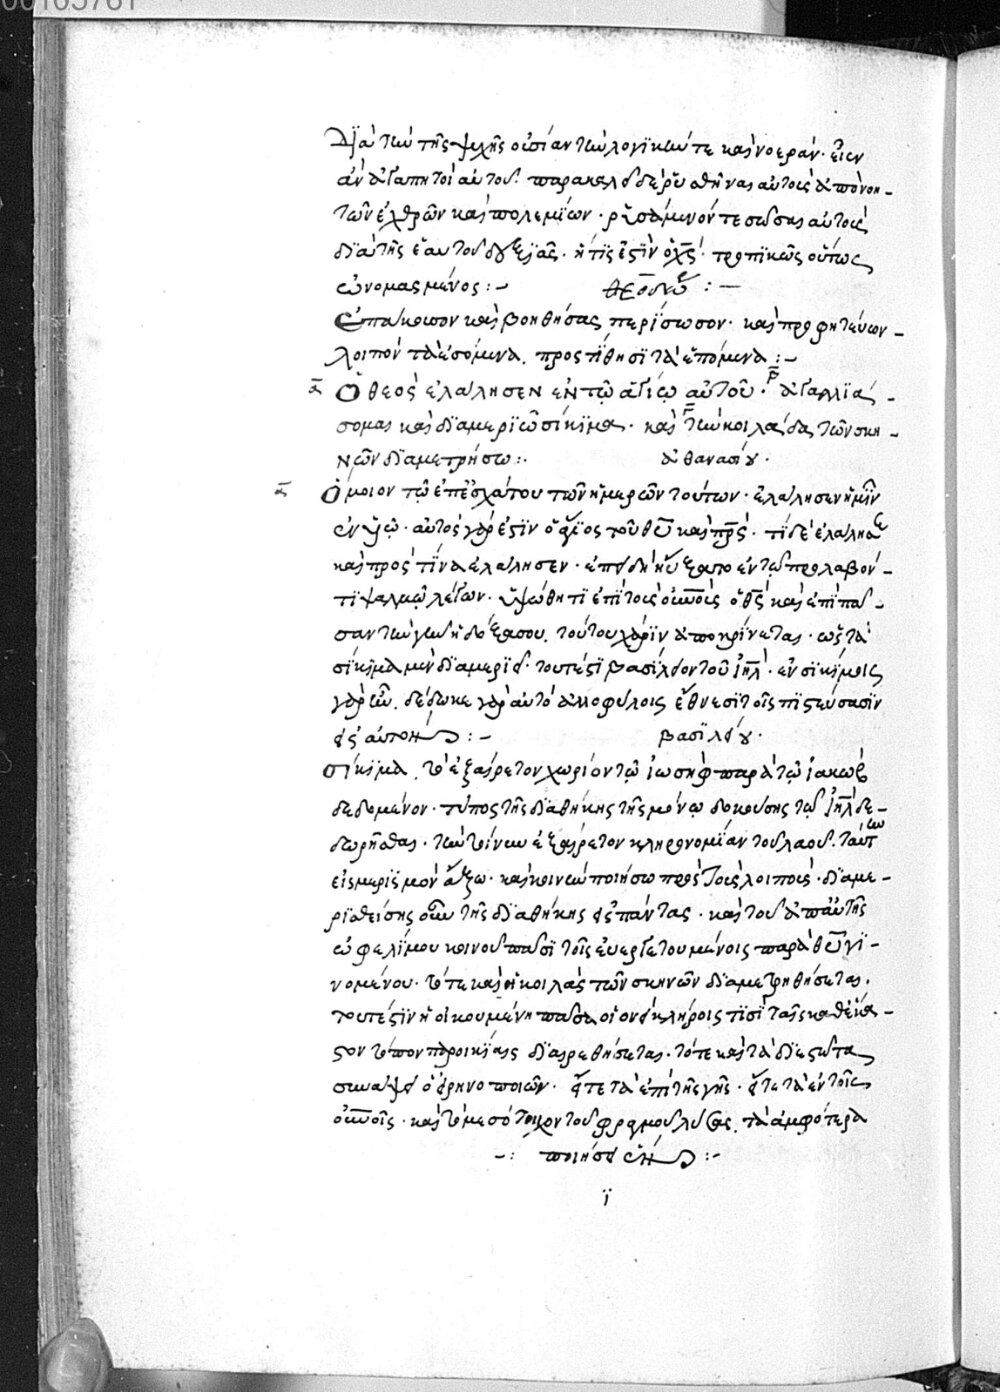 00105761
διὰ τὴν τῆς ψυχῆς οὐσίαν τὴν λογϊκήν τε καὶ νοεράν· εἶεν
ἂν ἀγαπητοὶ αὐτοῦ· παρακαλεῖ δὲ ῥυσθῆναι αὐτοὺς ἀπὸ νοη-
τῶν ἐχθρῶν καὶ πολεμΐων· ῥυσάμενόν τε σώσας αὐτοὺς
διὰ τῆς ἑαυτοῦ δεξϊᾶς· ἥτϊς ἐστὶν ὁ χς· τροπϊκῶς οὕτως
ὠνομασμένος :- θεοδωρ :-
Επάκουσον καὶ βοηθήσας περίσωσον· καὶ προφητεύων-
λοιπὸν τὰ ἐσόμενα. προστίθησϊ τὰ ἑπόμενα :-
Ὁ θεὸς ἐλάλησεν ἐν τῶ ἁγίω αὐτοῦ· ἀγαλλϊά-
σομαι καὶ διαμερϊῶ σίκϊμα· καὶ τὴν κοιλάδα τῶν σκη-
νῶν διαμετρήσω :. ἀθανασίου·
Ὅμοιον τῶ ἐπ' ἐσχάτου τῶν ἡμερῶν τούτων· ἐλάλησεν ἡμῖν
ἐν υἱῶ· αὐτὸς γάρ ἐστϊν ὁ ἅγϊος τοῦ θυ καὶ πρς· τί δὲ ἐλάλησε
καὶ πρὸς τίνα ἐλάλησεν· ἐπειδὴ ηὔξατο ἐν τῶ προλαβόν-
τϊ ψαλμῶ λέγων. ὑψώθητϊ ἐπὶ τοὺς οὐνοὺς ὁ θς καὶ ἐπὶ πᾶ-
σαν τὴν γῆν ἡ δόξα σου. τούτου χάρϊν ἀποκρίνεται· ὡς τὰ
σίκϊμα μὲν διαμερϊεῖ· τουτέστϊ βασίλειον τοῦ ἰηλ· ἐν σϊκίμοις
γὰρ ἦν. δέδωκε γὰρ αὐτὸ ἀλλοφύλοις ἔθνεσϊ τοῖς πϊστεύσασϊν
εἰς αὐτόν :- βασϊλείου·
σίκϊμα. τὸ ἐξαίρετον χωρίον τῶ ἰωσὴφ παρὰ τῶ ἰακὼβ
δεδομένον· τύπος τῆς διαθήκης τῆς μόνω δοκούσης τῶ ἰηλ δε-
δωρῆσθαι· τὴν τοίνυν ἐξαίρετον κληρονομΐαν τοῦ λαοῦ. ταύτην
εἰς μερϊσμὸν ἄξω· καὶ κοινὴν ποιήσω πρὸς τοὺς λοιπούς· διαμε-
ρϊσθείσης οὖν τῆς διαθήκης εἰς πάντας· καὶ τοῦ ἀπ' αὐτῆς
ὠφελίμου κοινοῦ πᾶσϊ τοῖς εὐεργετουμένοις παρὰ θυ γϊ-
νομένου· τότε καὶ ἡ κοιλὰς τῶν σκηνῶν διαμετρηθήσεται.
τουτέστϊν ἡ οἰκουμένη πᾶσα οἱονεὶ κλήροις τϊσϊ ταῖς καθ' ἕκα-
στον τόπον παροικΐαις διαιρεθήσεται· τότε καὶ τὰ διεστῶτα
συνάψει ὁ εἰρηνοποιῶν· εἴτε τὰ ἐπὶ τῆς γῆς· εἴτε τὰ ἐν τοῖς
οὐνοῖς· καὶ τὸ μεσότοιχον τοῦ φραγμοῦ λύσας. τὰ ἀμφότερα
-: ποιήσει ἕν :-
ϊ